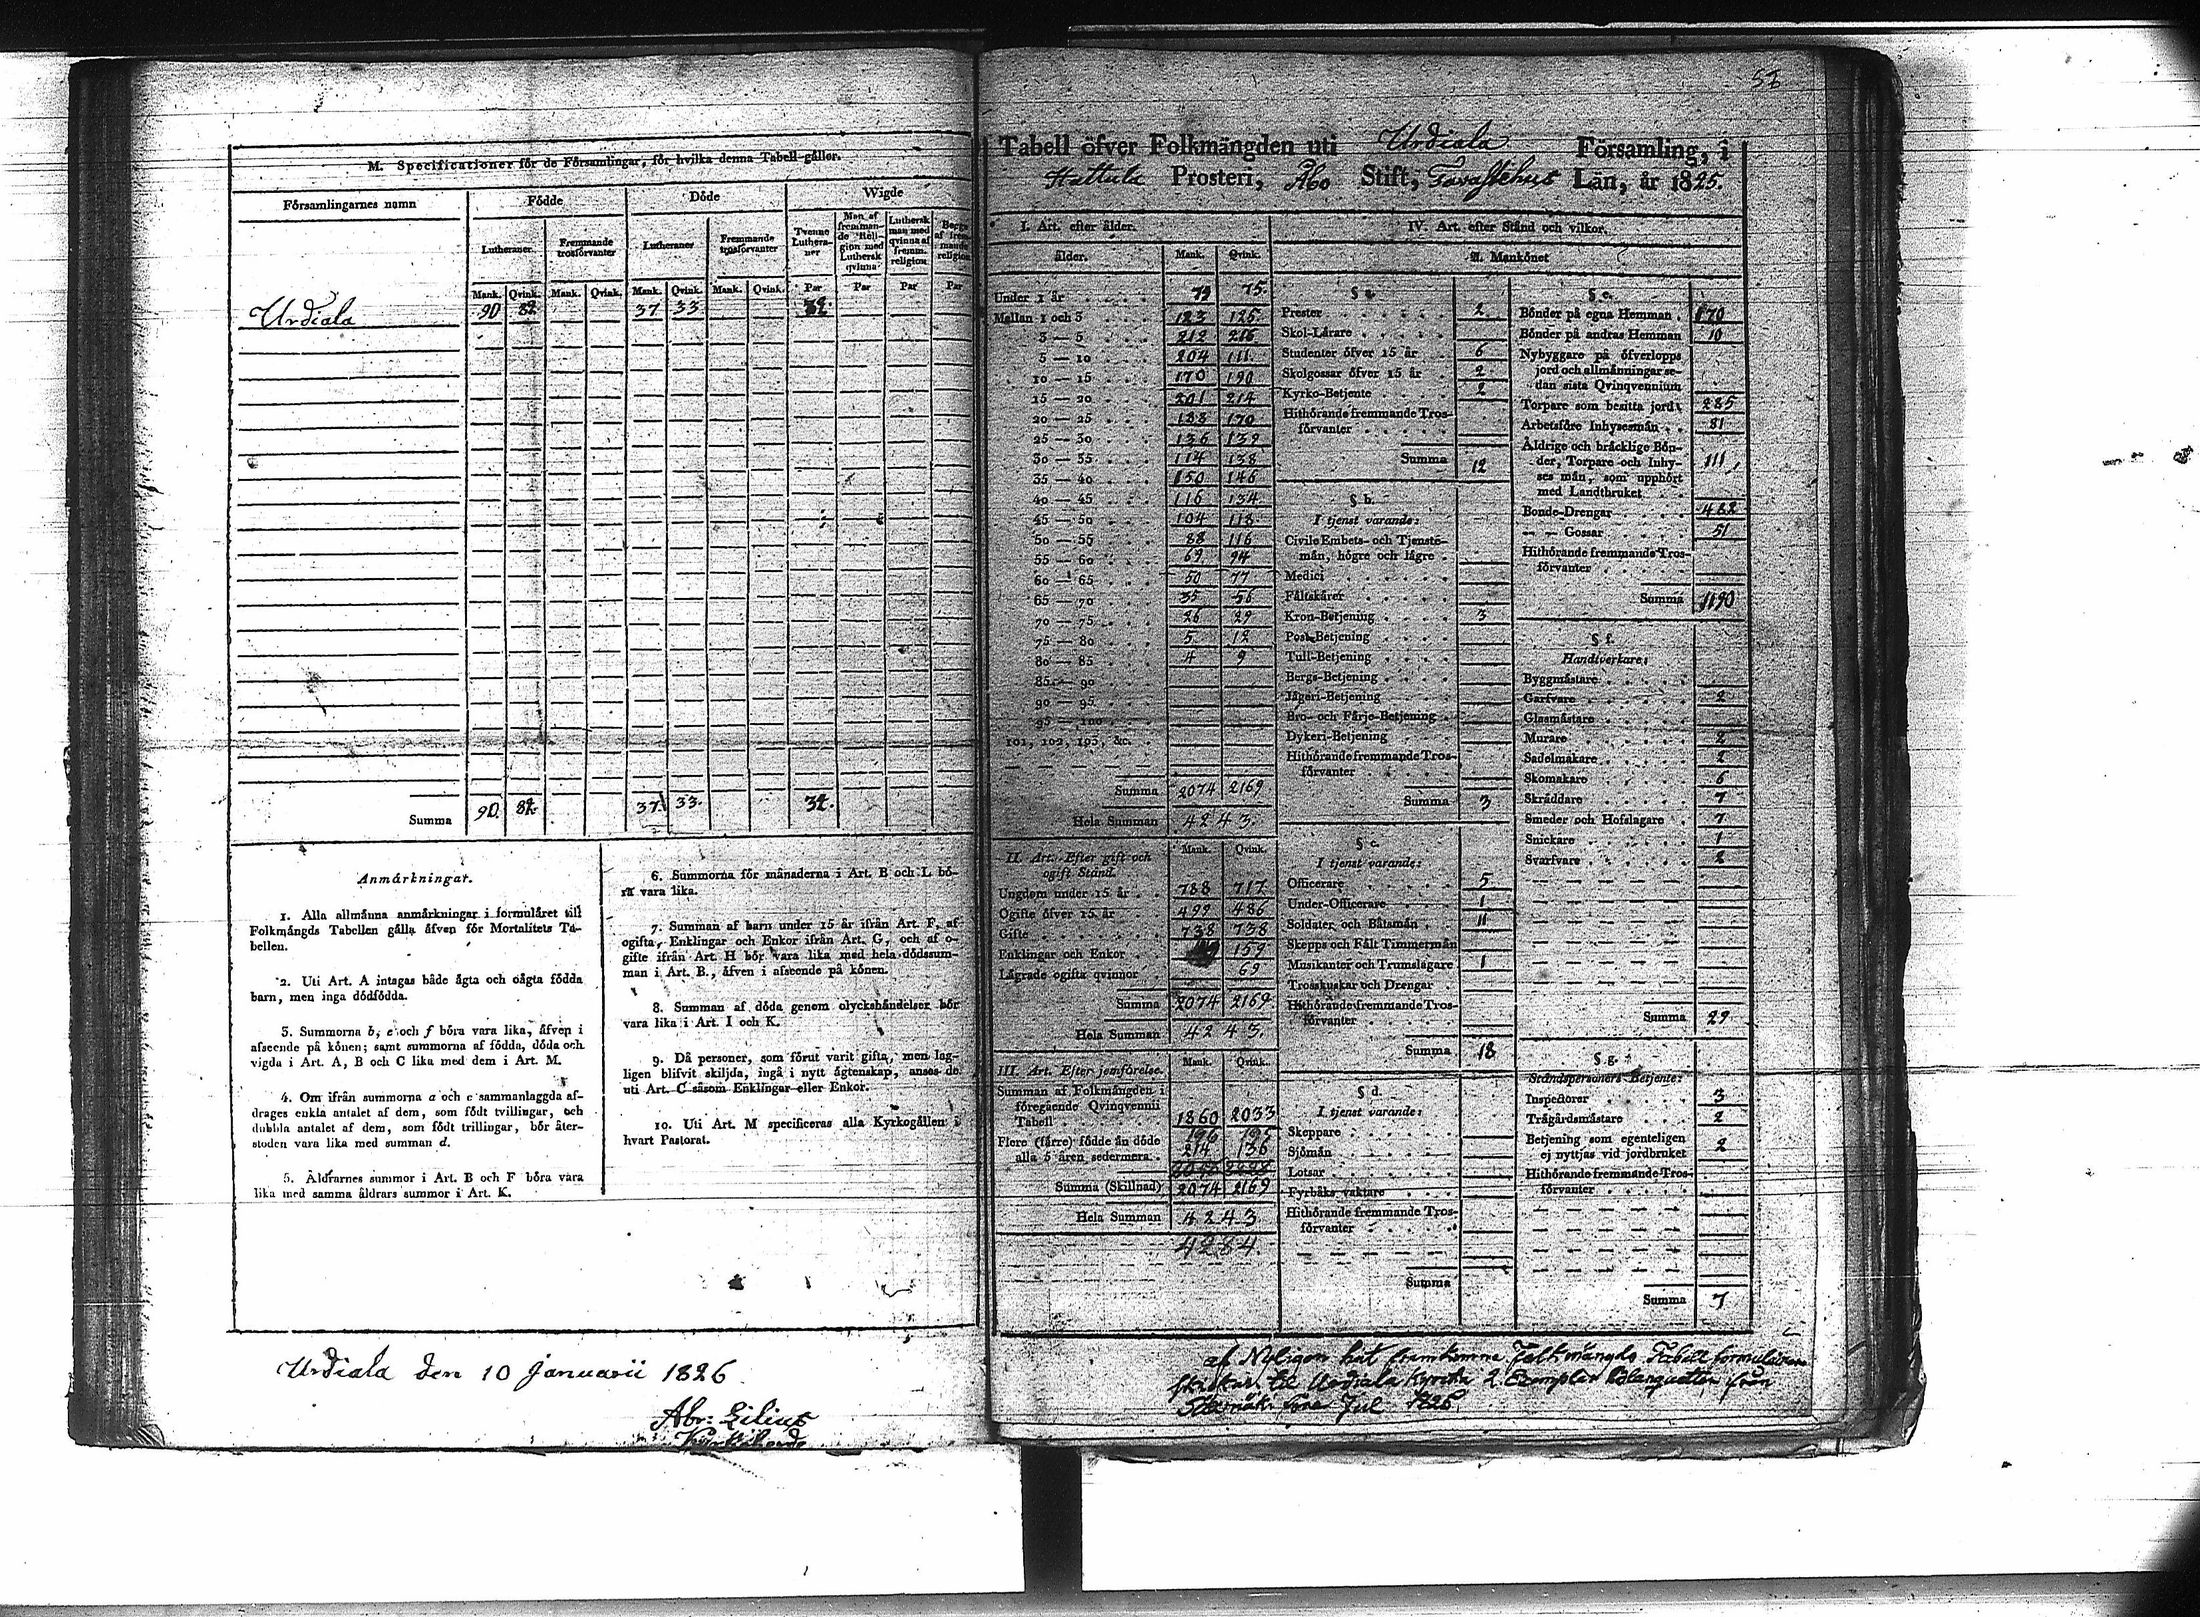 M. Specificationer för de Församlingar, för hvilka denna Tabell gäller.
Församlingarnes namn
Födde
Döde
Wigde
Lutheraner.
Fremmande trosförvanter
Lutheraner
Fremmande trosförvanter
Tvenne Lutheraner
Man af fremmande Religion med Luthersk qvinna
Luthersk man med qvinna af fremm. religion
Mank. Qvink. Mank. Qvink. Mank. Qvink. Mank. Qvink. Par Par Par Par
Urdiala 90 37 33
Summa 90 37 33
Anmärkningar.
1. Alla allmänna anmärkningar i formuläret till
Folkmängds Tabellen gälla äfven för Mortalitets Ta-
bellen.
2. Uti Art. A intagas både ägta och oägta födda
barn, men inga dödfödda.
3. Summorna b, e och f böra vara lika, äfven i
afseende på könen; samt summorna af födda, döda och
vigda i Art. A, B och C lika med dem i Art. M.
4. Om ifrån summorna a och c sammanlaggda af-
drages enkla antalet af dem, som födt tvillingar, och
dubbla antalet af dem, som födt trillingar, bör åter-
stoden vara lika med summan d.
5. Åldrarnes summor i Art. B och F böra vara
lika med samma åldrars summor i Art. K.
6. Summorna för månaderna i Art. B och L bö-
ra vara lika.
7. Summan af barn under 15 år ifrån Art. F, af
ogifta, Enklingar och Enkor ifrån Art. G, och af o-
gifte ifrån Art. H bör vara lika med hela dödssum-
man i Art. B., äfven i afseende på könen.
8. Summan af döda genom olyckshändelser bör
vara lika i Art. I och K.
9. Då personer, som förut varit gifta, men lag-
ligen blifvit skiljda, ingå i nytt ägtenskap, anses de
uti Art. C såsom Enklingar eller Enkor.
10. Uti Art. M specificeras alla Kyrkogällen i
hvart Pastorat.
Urdiala den 10 Januarii 1826
Abr: Lilius
Tabell öfver Folkmängden uti Urdiala Församling, i
Hattula Prosteri, Åbo Stift, Tavastehus Län, år 1825.
I. Art. efter ålder.
ålder. Mank. Qvink.
Under 1 år 75.
Mellan 1 och 3 123 125
3 — 5 212 216
5 — 10 204 111
10 — 15 170 190
15 — 20 201 214
20 — 25 188 170
25 — 30 136 139
30 — 35 114 138
35 — 40 150 146
40 — 45 116 134
45 — 50 104 118
50 — 55 88 116
55 — 60 69 94
60 — 65 50 77
65 — 70 35 56
70 — 75 26 29
75 — 80 5 12
80 — 85 4 9
85 — 90
90 — 95
95 — 100
101, 102, 103, &c.
Summa 2074 2169
Hela Summan 4243.
II. Art. Efter gift och ogift Stånd. Mank. Qvink.
Ungdom under 15 år 788 717
Ogifte öfver 15 år 499 486
Gifte 738 738
Enklingar och Enkor 159
Lägrade ogifta qvinnor 69
Summa 2074 2169
Hela Summan 4243.
III. Art. Efter jemförelse. Mank. Qvink.
Summan af Folkmängden i
föregående Qvinqvennii
Tabell 1860 2033
Flere (färre) födde än döde
alla 5 åren sedermera 214 136
Summa (Skillnad) 2074 2169
Hela Summan 4243
4284.
IV. Art. efter Stånd och vilkor.
A. Mankönet
§ a.
Prester 2
Skol-Lärare
Studenter öfver 15 år 6
Skolgossar öfver 15 år 2
Kyrko-Betjente 2
Hithörande fremmande Tros-
förvanter
Summa 12
§ b.
I tjenst varande:
Civile Embets- och Tjenste-
män, högre och lägre
Medici
Fältskärer
Kron-Betjening 3
Post-Betjening
Tull-Betjening
Bergs-Betjening
Jägeri-Betjening
Bro- och Färje-Betjening
Dykeri-Betjening
Hithörande fremmande Tros-
förvanter
Summa 3
§ c.
I tjenst varande:
Officerare 5
Under-Officerare 1
Soldater och Båtsmän 11
Skepps och Fält Timmermän
Musikanter och Trumslagare 1
Trosskuskar och Drengar
Hithörande fremmande Tros-
förvanter
Summa 18
§ d.
I tjenst varande:
Skeppare
Sjömän
Lotsar
Fyrbåks vaktare
Hithörande fremmande Tros-
förvanter
Summa
§ e.
Bönder på egna Hemman 170
Bönder på andras Hemman 10
Nybyggare på öfverlopps
jord och allmänningar se-
dan sista Qvinqvennium
Torpare som besitta jord 285
Arbetsföre Inhysesmän 81
Åldrige och bräcklige Bön-
der, Torpare och Inhy-
ses män, som upphört
med Landtbruket 111
Bonde-Drengar 482
— — Gossar 51
Hithörande fremmande Tros-
förvanter
Summa 1190
§ f.
Handtverkare:
Byggmästare
Garfvare 2
Glasmästare
Murare 2
Sadelmakare 2
Skomakare 6
Skräddare 7
Smeder och Hofslagare 7
Snickare 1
Svarfvare 2
Summa 29
§ g.
Ståndspersoners Betjente:
Inspectorer 3
Trägårdsmästare 2
Betjening som egenteligen
ej nyttjas vid jordbruket 2
Hithörande fremmande Tros-
förvanter
Summa 7
af Nyligen hit framkomne Folkmängds Tabell formulairen
til Urdiala Kyrcka 2 Exemplar Blanquetter från
Jul 1825.